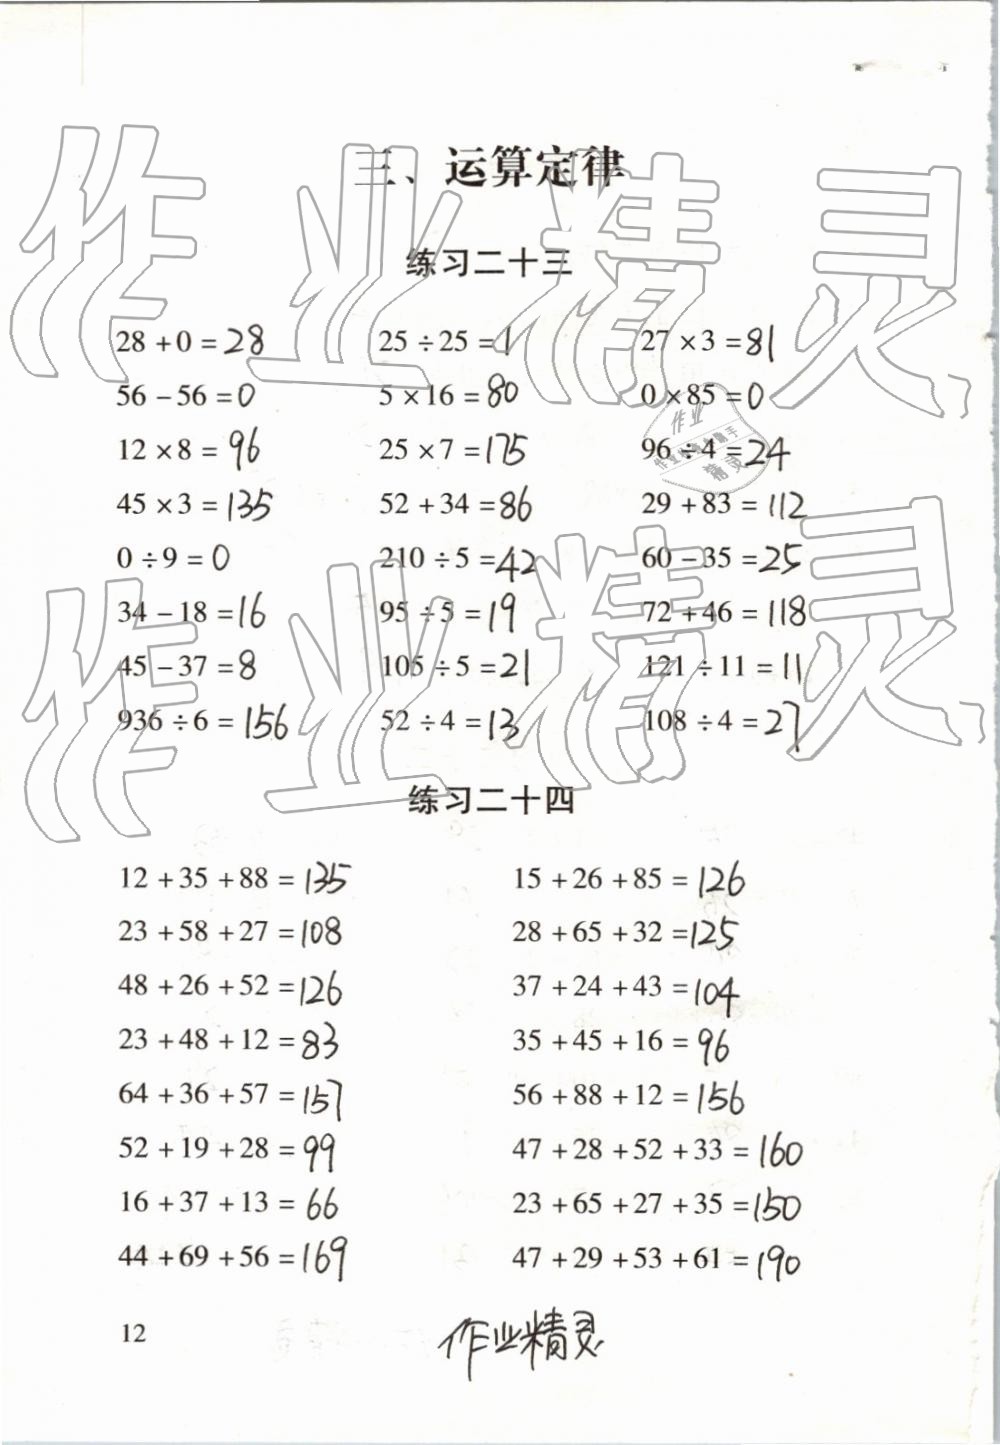 三、运算定律
练习二十三
28 + 0 = 28 25 ÷ 25 = 1 27 × 3 = 81
56 - 56 = 0 5 × 16 = 80 0 × 85 = 0
12 × 8 = 96 25 × 7 = 175 96 ÷ 4 = 24
45 × 3 = 135 52 + 34 = 86 29 + 83 = 112
0 ÷ 9 = 0 210 ÷ 5 = 42 60 - 35 = 25
34 - 18 = 16 95 ÷ 5 = 19 72 + 46 = 118
45 - 37 = 8 105 ÷ 5 = 21 121 ÷ 11 = 11
936 ÷ 6 = 156 52 ÷ 4 = 13 108 ÷ 4 = 27
练习二十四
12 + 35 + 88 = 135 15 + 26 + 85 = 126
23 + 58 + 27 = 108 28 + 65 + 32 = 125
48 + 26 + 52 = 126 37 + 24 + 43 = 104
23 + 48 + 12 = 83 35 + 45 + 16 = 96
64 + 36 + 57 = 157 56 + 88 + 12 = 156
52 + 19 + 28 = 99 47 + 28 + 52 + 33 = 160
16 + 37 + 13 = 66 23 + 65 + 27 + 35 = 150
44 + 69 + 56 = 169 47 + 29 + 53 + 61 = 190
12
作业精灵
作业精灵
作业精灵
作业
精灵